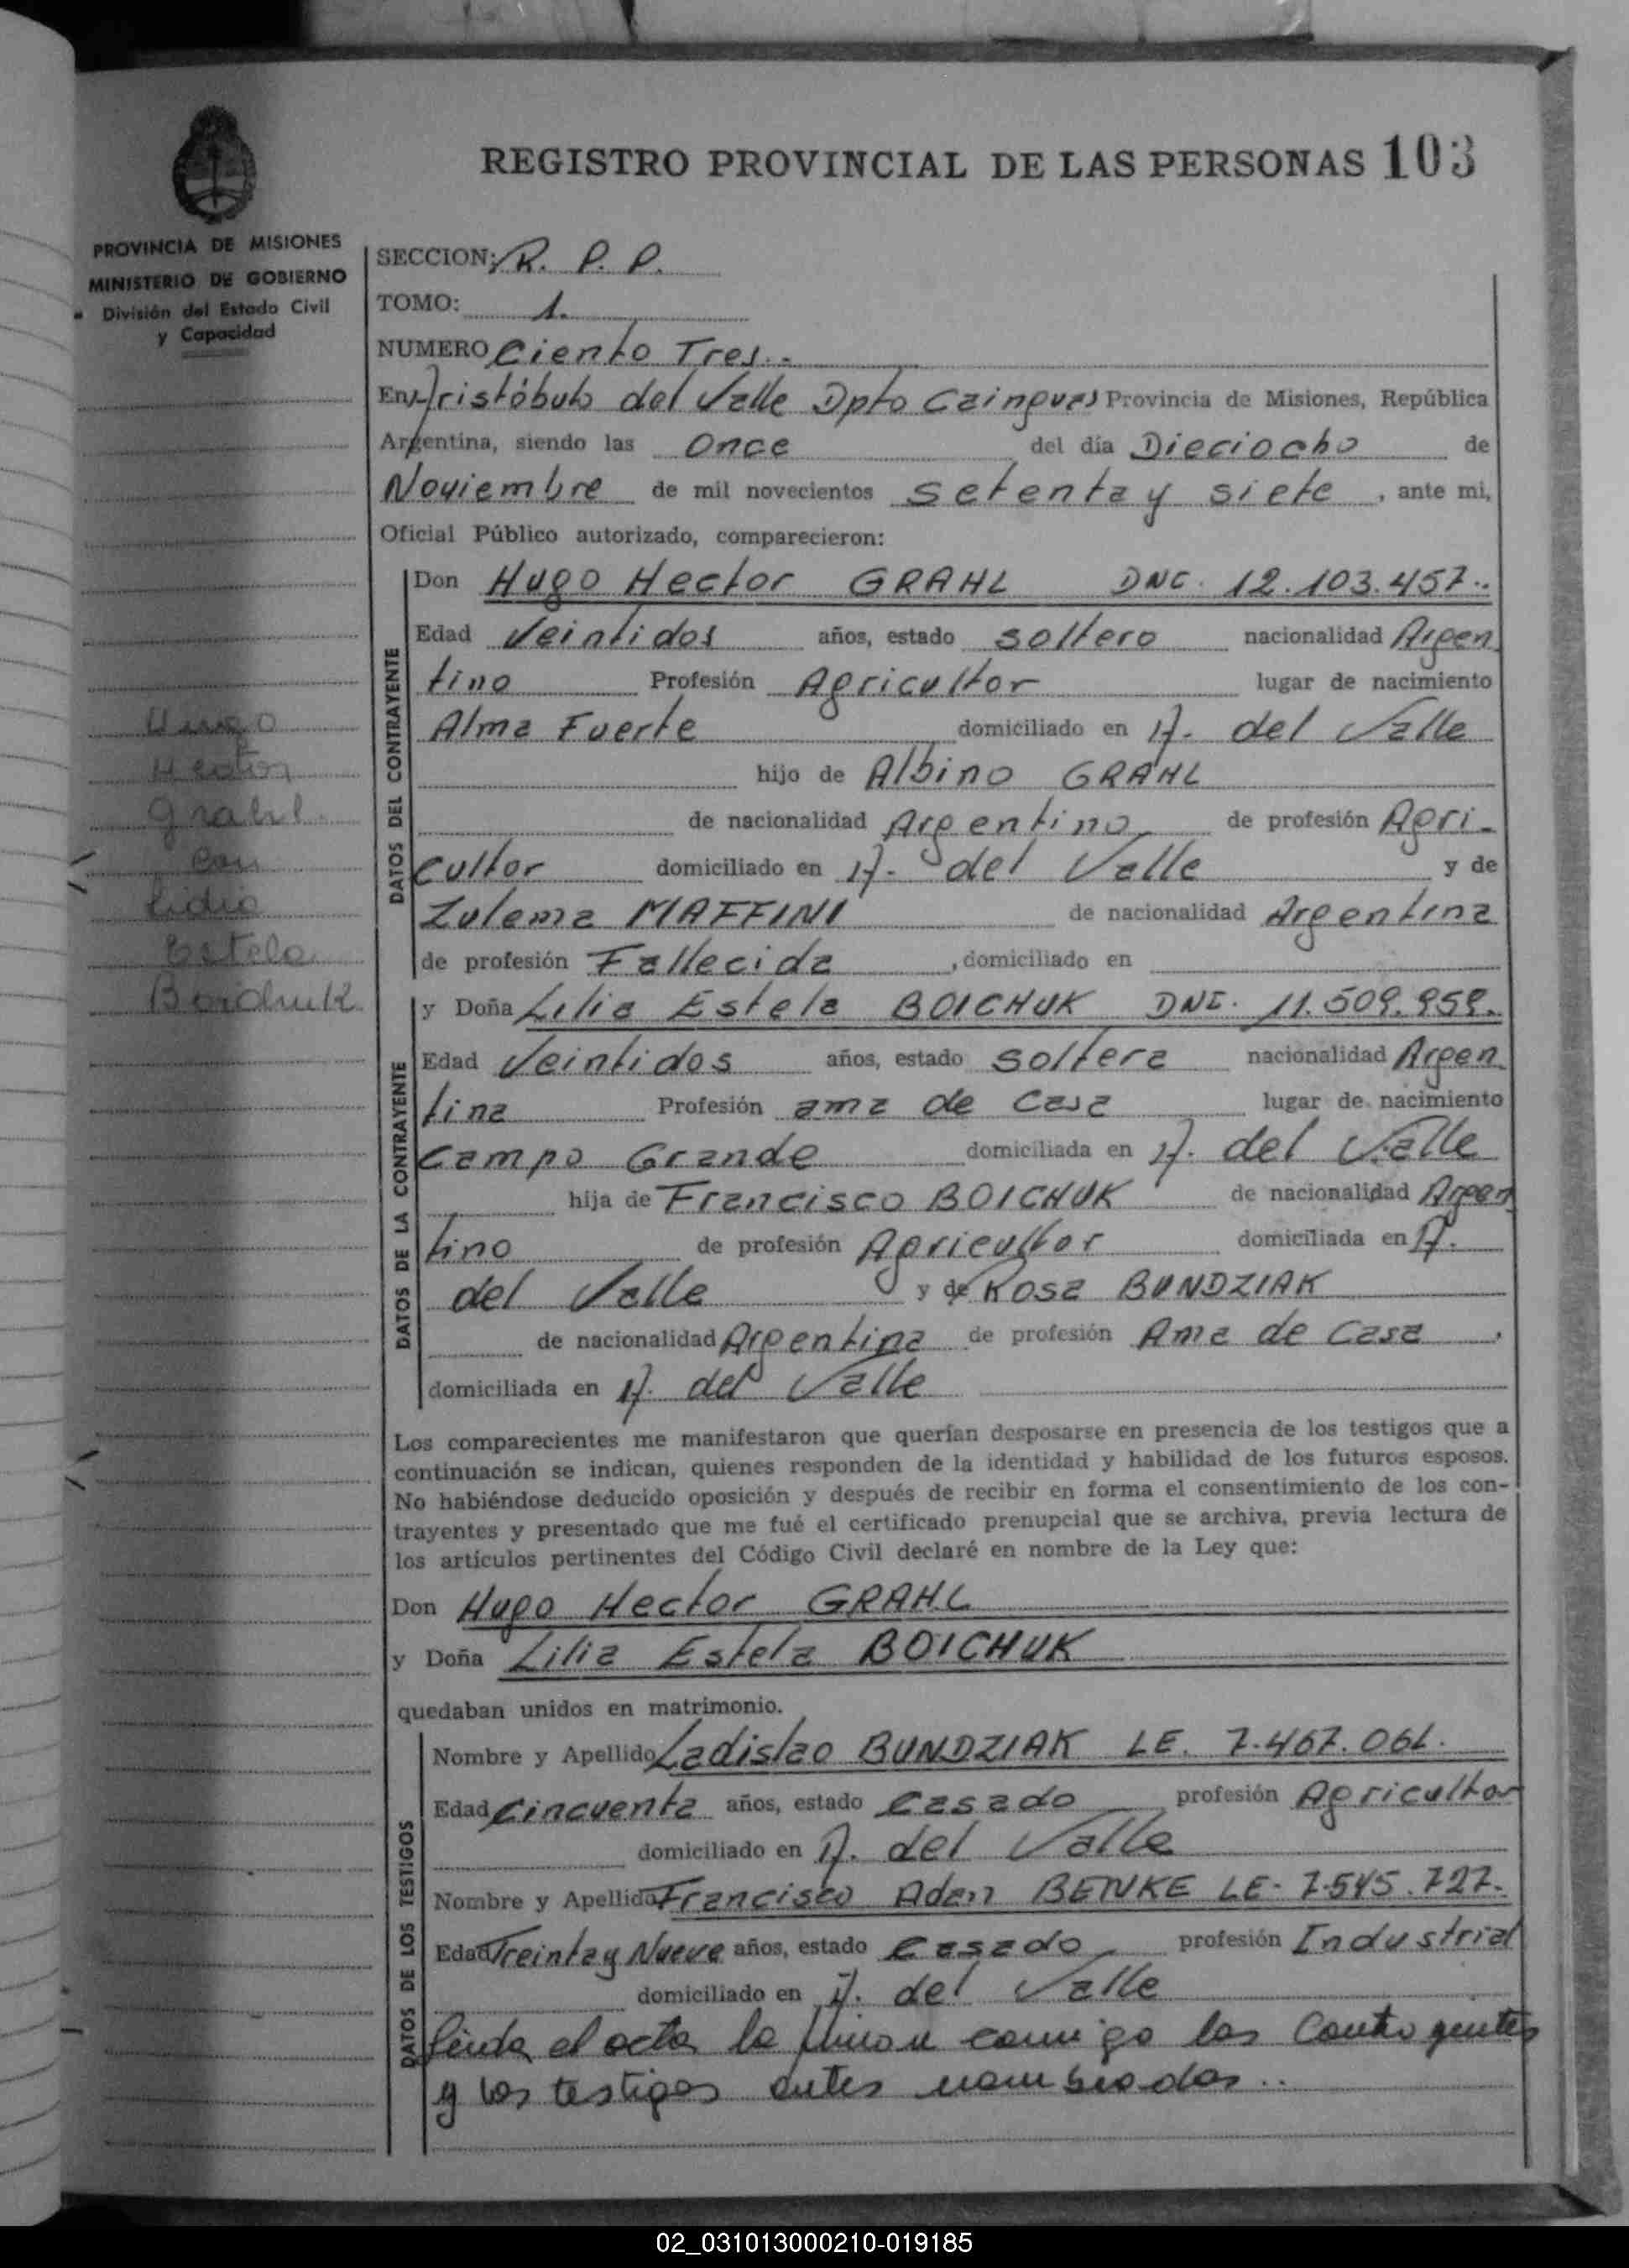 REGISTRO PROVINCIAL DE LAS PERSONAS 103
PROVINCIA DE MISIONES
MINISTERIO DE GOBIERNO
División del Estado Civil
y Capacidad
SECCION: R. P. P.
TOMO: 1.
NUMERO Ciento Tres..
En Aristóbulo del Valle Dpto Cainguas Provincia de Misiones, República
Argentina, siendo las Once del día Dieciocho de
Noviembre de mil novecientos setenta y siete, ante mi,
Oficial Público autorizado, comparecieron:
DATOS DEL CONTRAYENTE
Don Hugo Hector GRAHL DNC. 12.103.457..
Edad Veintidos años, estado soltero nacionalidad Argen
tino Profesión Agricultor lugar de nacimiento
Alma Fuerte domiciliado en A. del Valle
hijo de Albino GRAHL
de nacionalidad Argentino de profesión Agri-
cultor domiciliado en A. del Valle y de
Zulema MAFFINI de nacionalidad Argentina
de profesión Fallecida, domiciliado en
Hugo
Hector
Grahl.
Con
Lidia
Estela
Boichuk
DATOS DE LA CONTRAYENTE
y Doña Lilia Estela BOICHUK DNI. 11.509.959.
Edad Veintidos años, estado soltera nacionalidad Argen
tina Profesión ama de casa lugar de nacimiento
Campo Grande domiciliada en A. del Valle
hija de Francisco BOICHUK de nacionalidad Argen
tino de profesión Agricultor domiciliada en A.
del Valle y de Rosa BUNDZIAK
de nacionalidad Argentina de profesión Ama de Casa,
domiciliada en A. del Valle
Los comparecientes me manifestaron que querían desposarse en presencia de los testigos que a
continuación se indican, quienes responden de la identidad y habilidad de los futuros esposos.
No habiéndose deducido oposición y después de recibir en forma el consentimiento de los con-
trayentes y presentado que me fué el certificado prenupcial que se archiva, previa lectura de
los artículos pertinentes del Código Civil declaré en nombre de la Ley que:
Don Hugo Hector GRAHL
y Doña Lilia Estela BOICHUK
quedaban unidos en matrimonio.
DATOS DE LOS TESTIGOS
Nombre y Apellido Ladislao BUNDZIAK LE. 7.467.061.
Edad Cincuenta años, estado Casado profesión Agricultor
domiciliado en A. del Valle
Nombre y Apellido Francisco Adan BENKE LE- 7.545.727.
Edad Treinta y Nueve años, estado Casado profesión Industrial
domiciliado en A. del Valle
leida el acta la firman conmigo los Contrayentes
y los testigos antes nombrados..
02_031013000210-019185